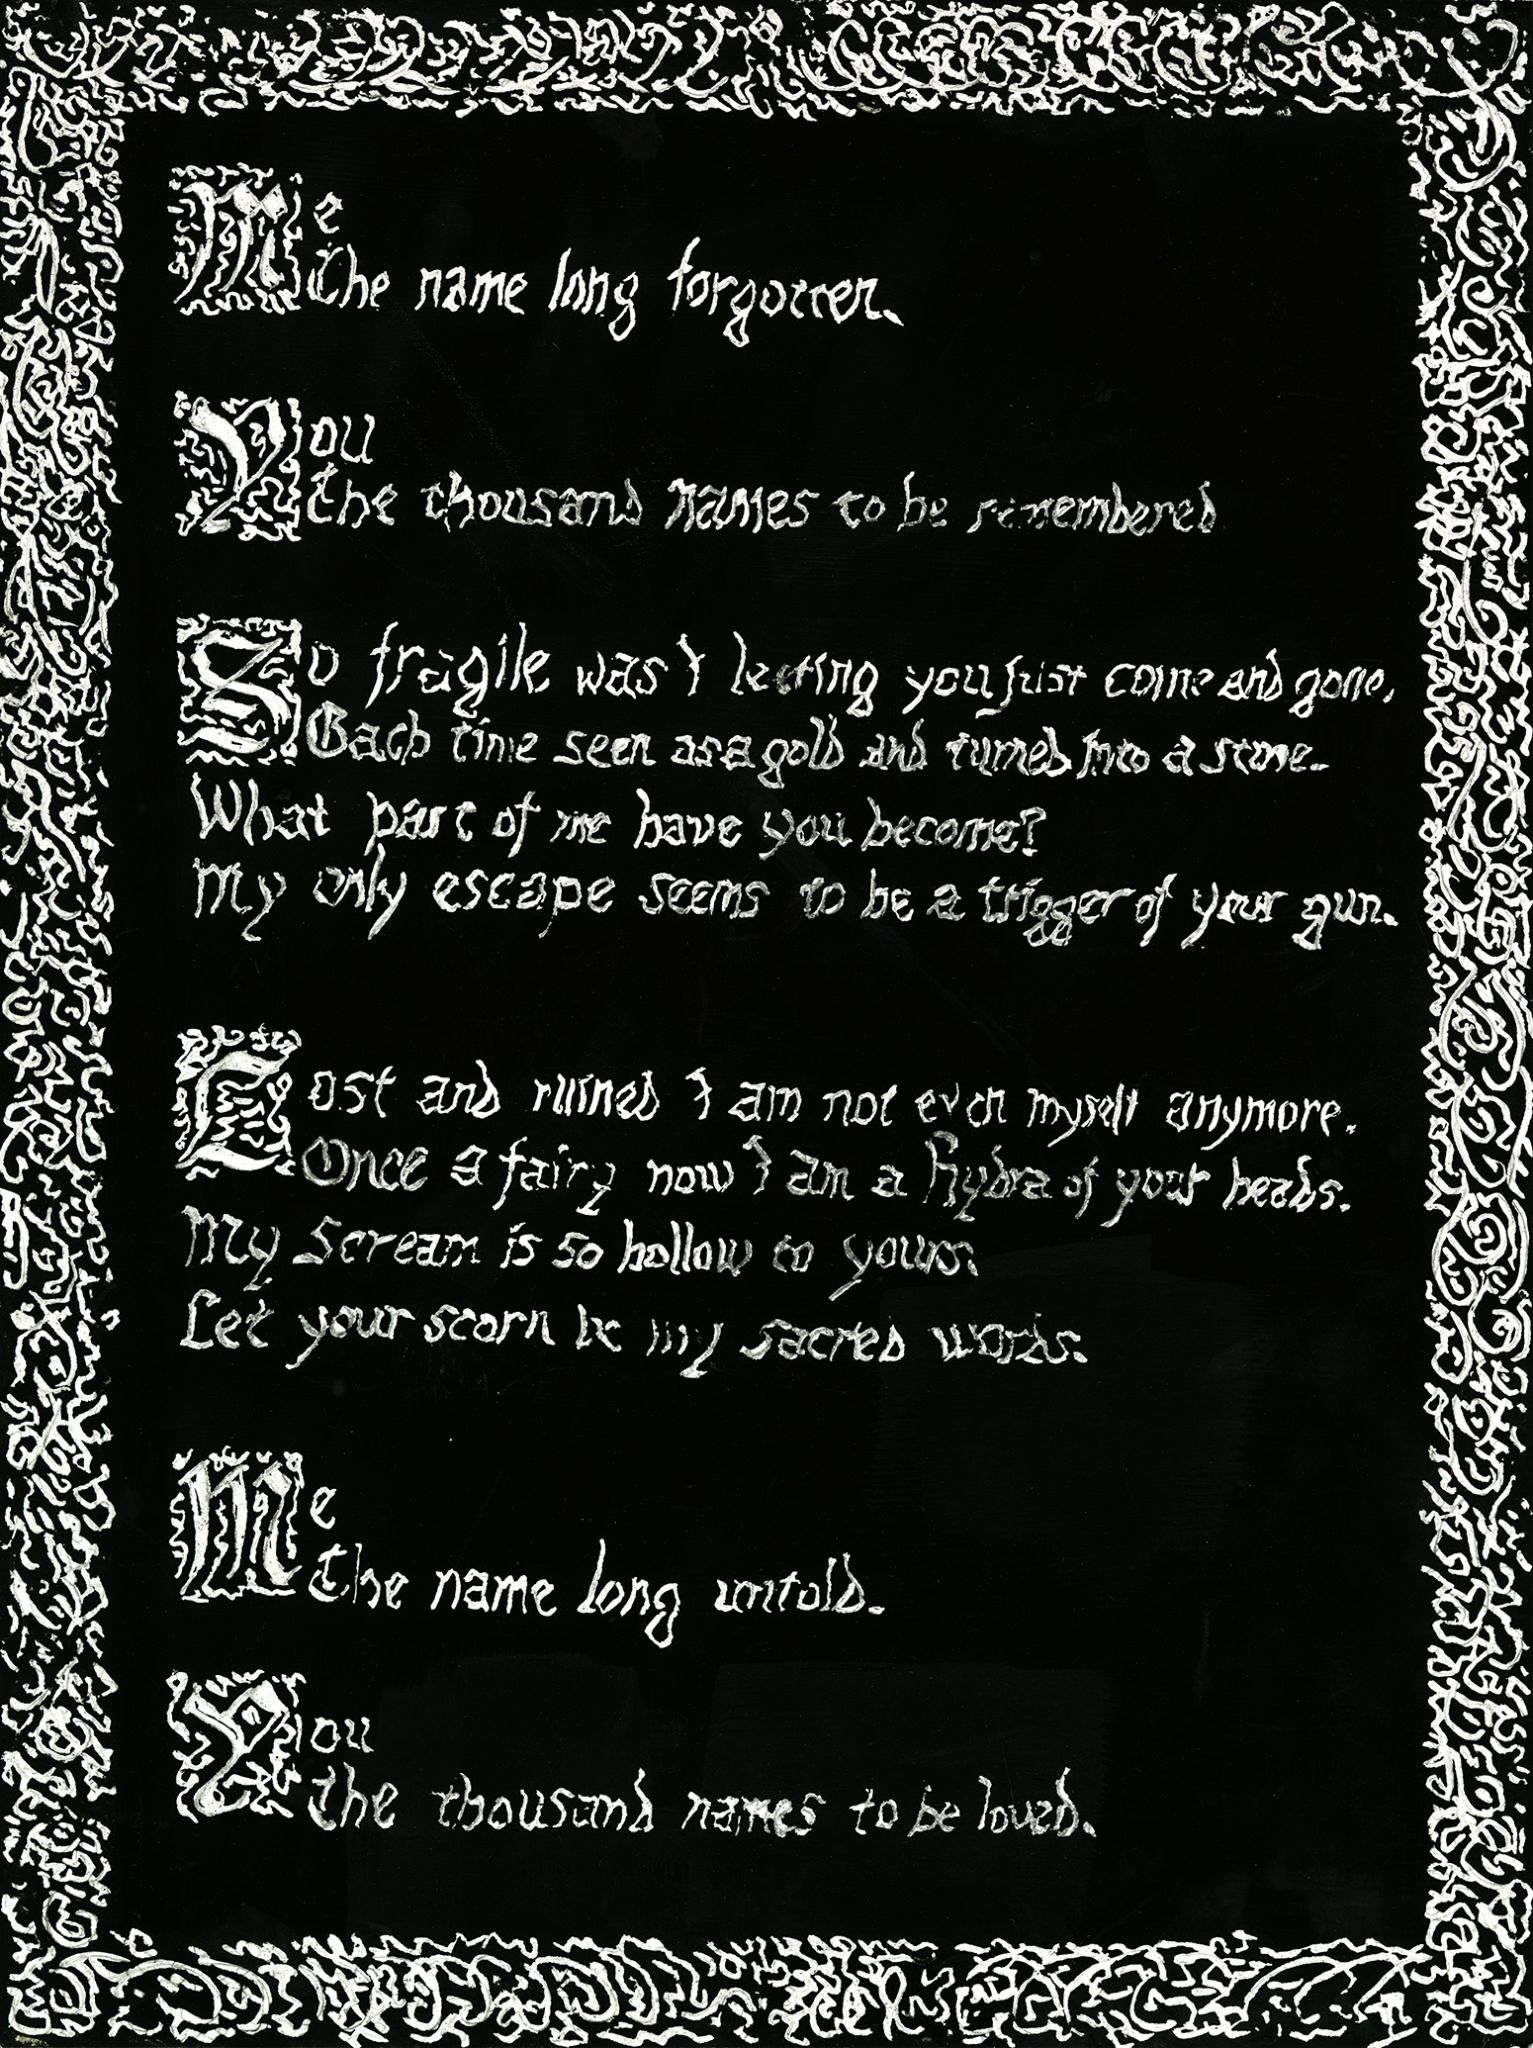 Me
the name long forgotten.
You
the thousand names to be remembered
So fragile was I letting you just come and gone.
Each time seen as a gold and turned into a stone.
What part of me have you become?
My only escape seems to be a trigger of your gun.
Lost and ruined I am not even myself anymore.
Once a fairy now I am a hydra of your heads.
My scream is so hollow to yours.
Let your scorn be my sacred words.
Me
the name long untold.
You
the thousand names to be loved.